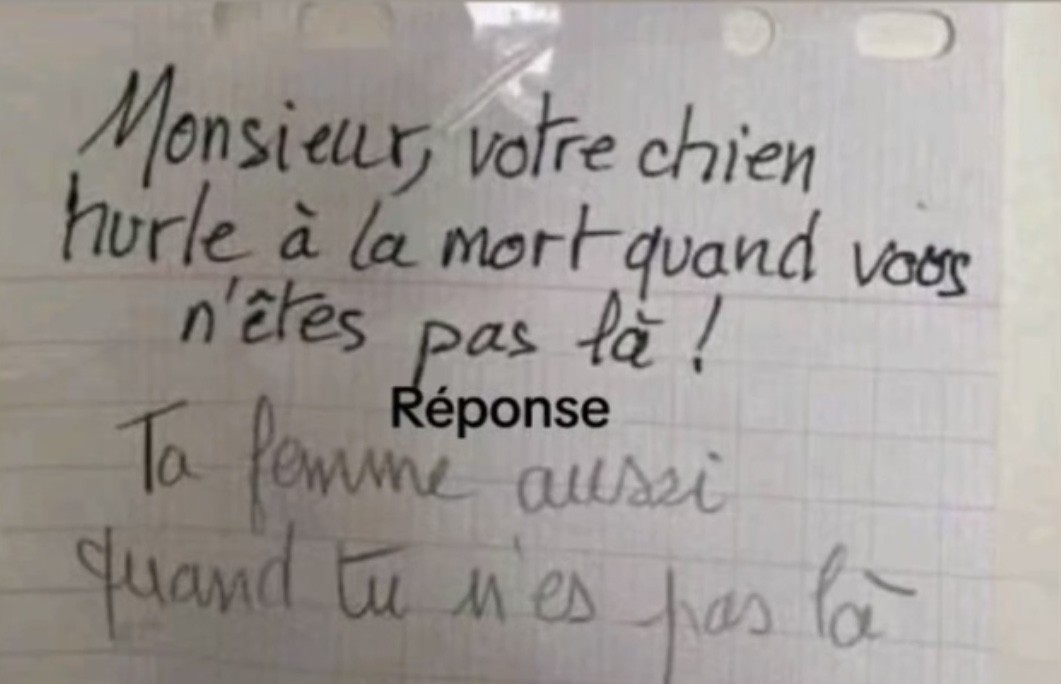 Monsieur, votre chien
hurle à la mort quand vous
n'êtes pas là !
Réponse
Ta femme aussi
quand tu n'es pas là